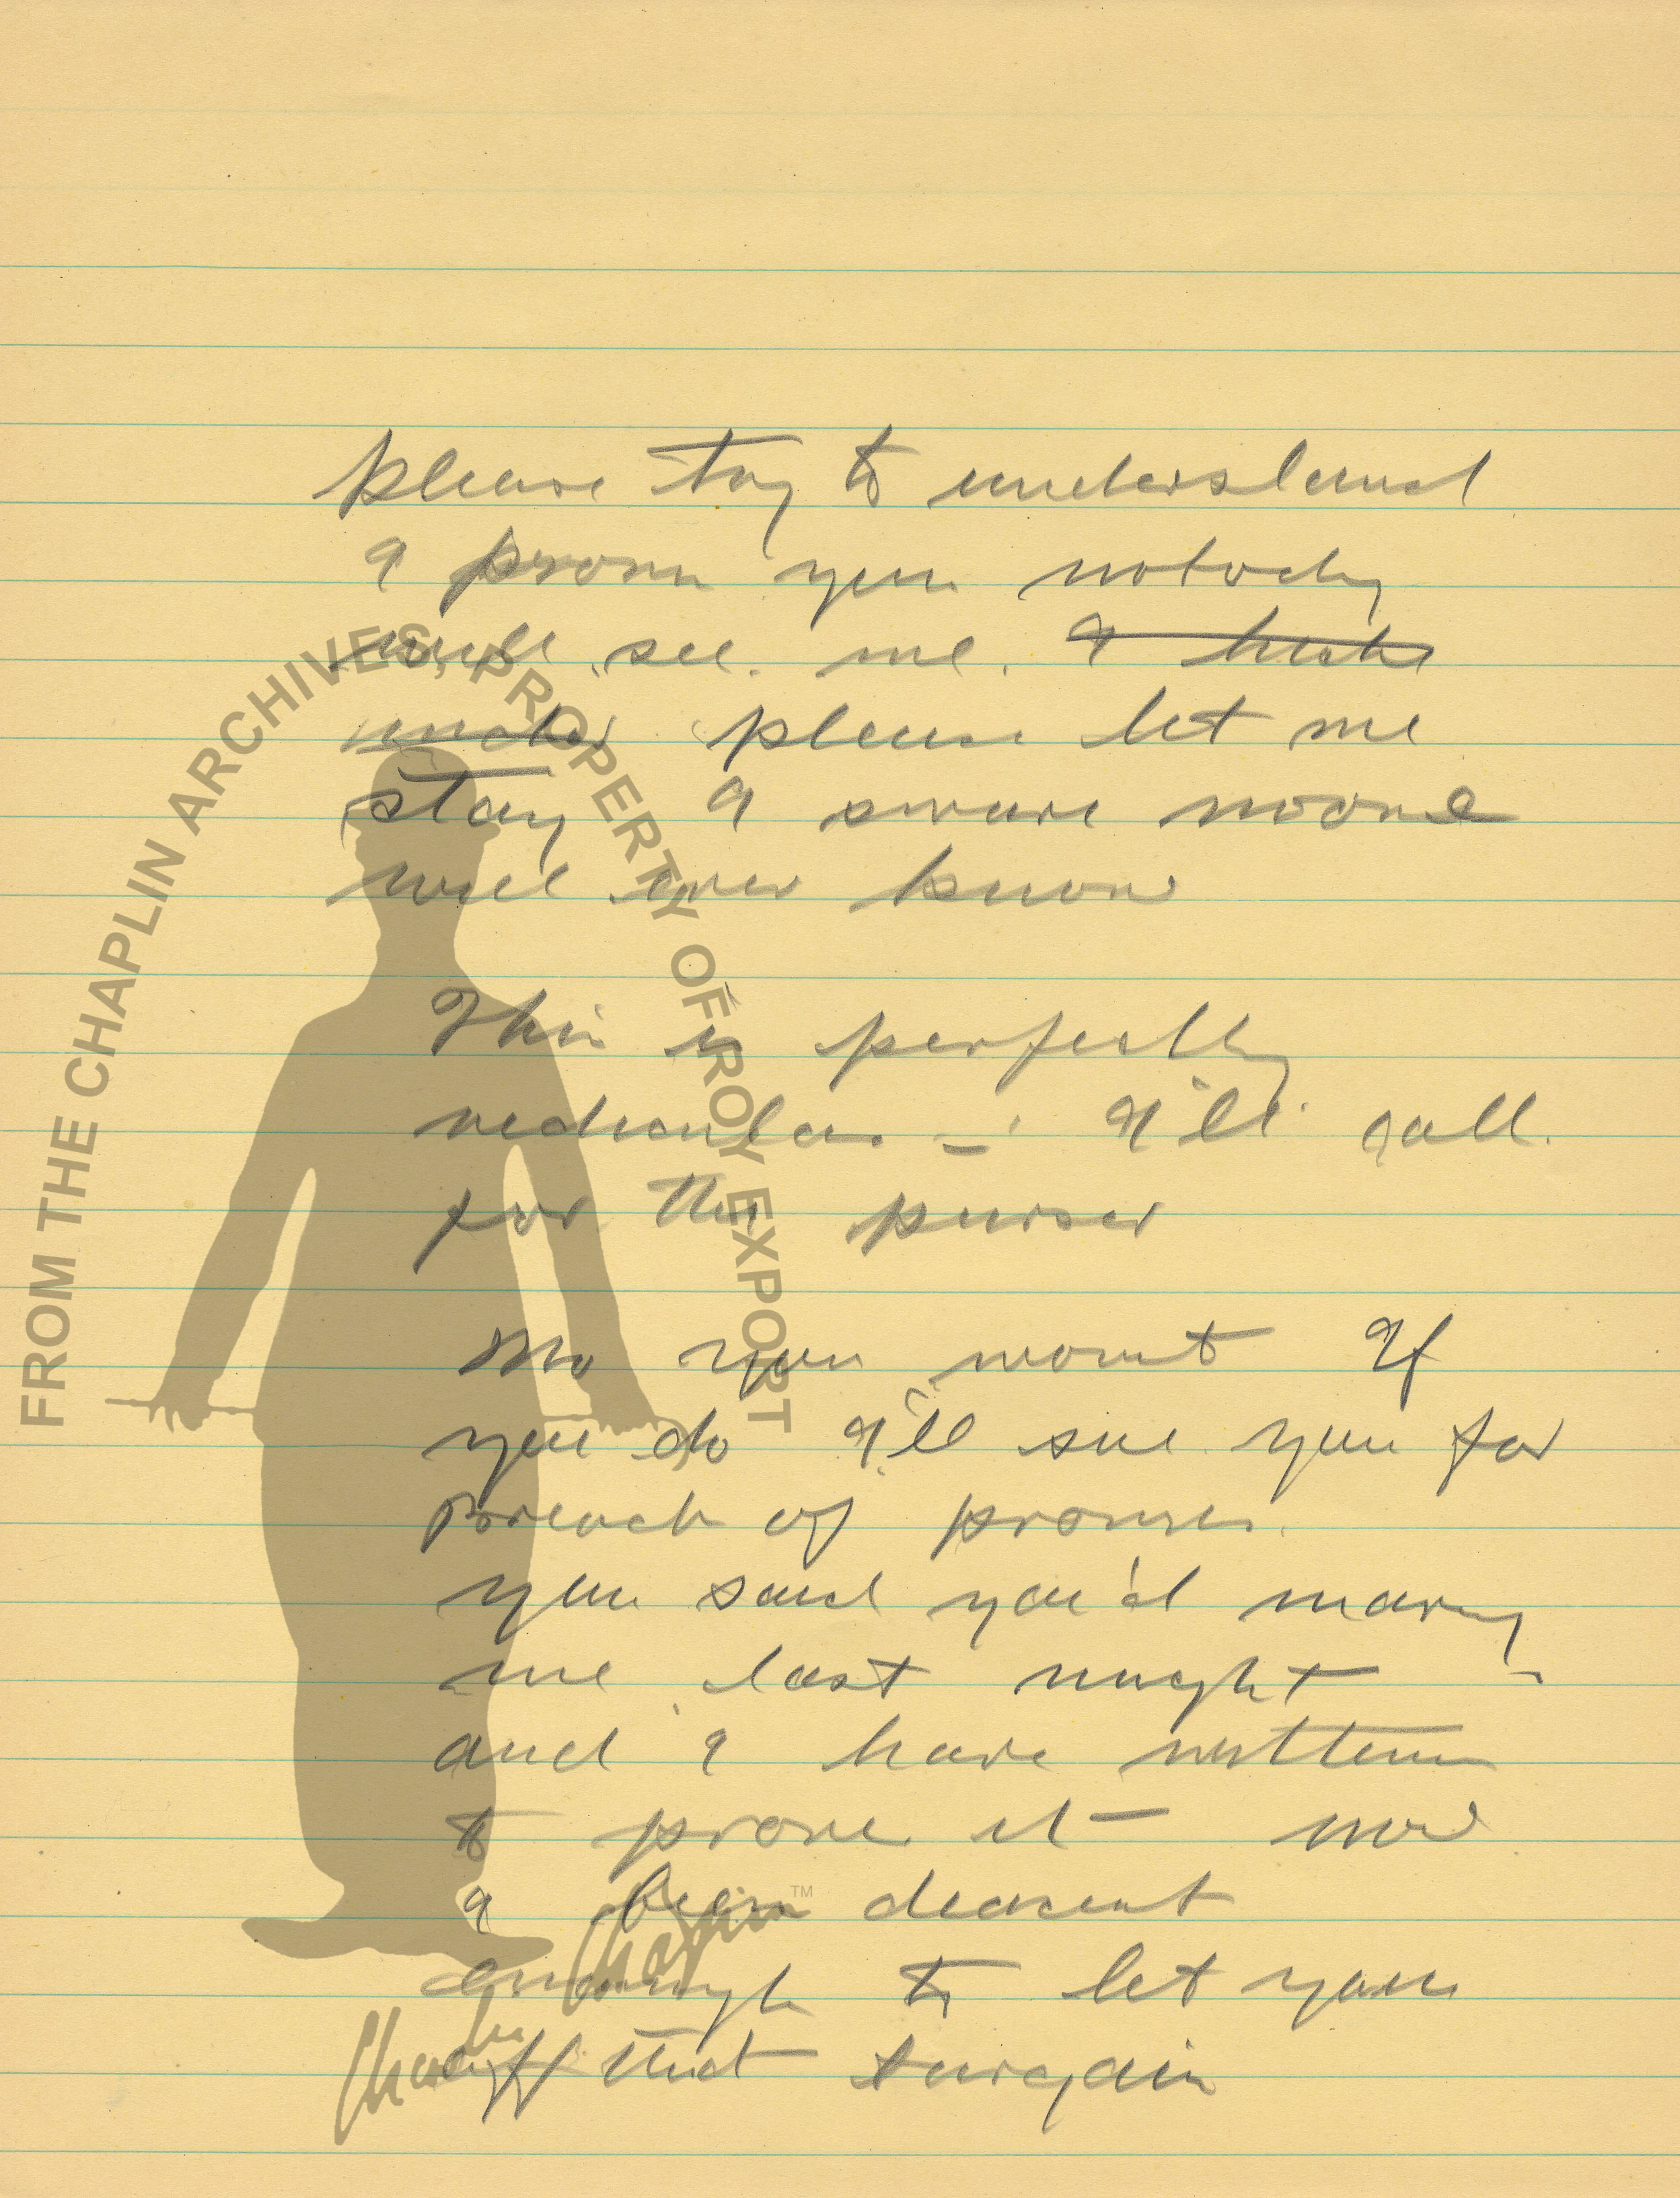 please try to understand
I prom you nobody
will see me. I hide
under please let me
stay I sware noone
will ever know
This is perfectly
rediculous – I'll call
for the purser
No you wount If
you do I'll sue you for
Breach of promise.
you said you'd marry
me last nught –
and I have written
to prove it – now
I been deacent
enough to let you
off that bargain
FROM THE CHAPLIN ARCHIVES, PROPERTY OF ROY EXPORT
Charlie Chaplin ™